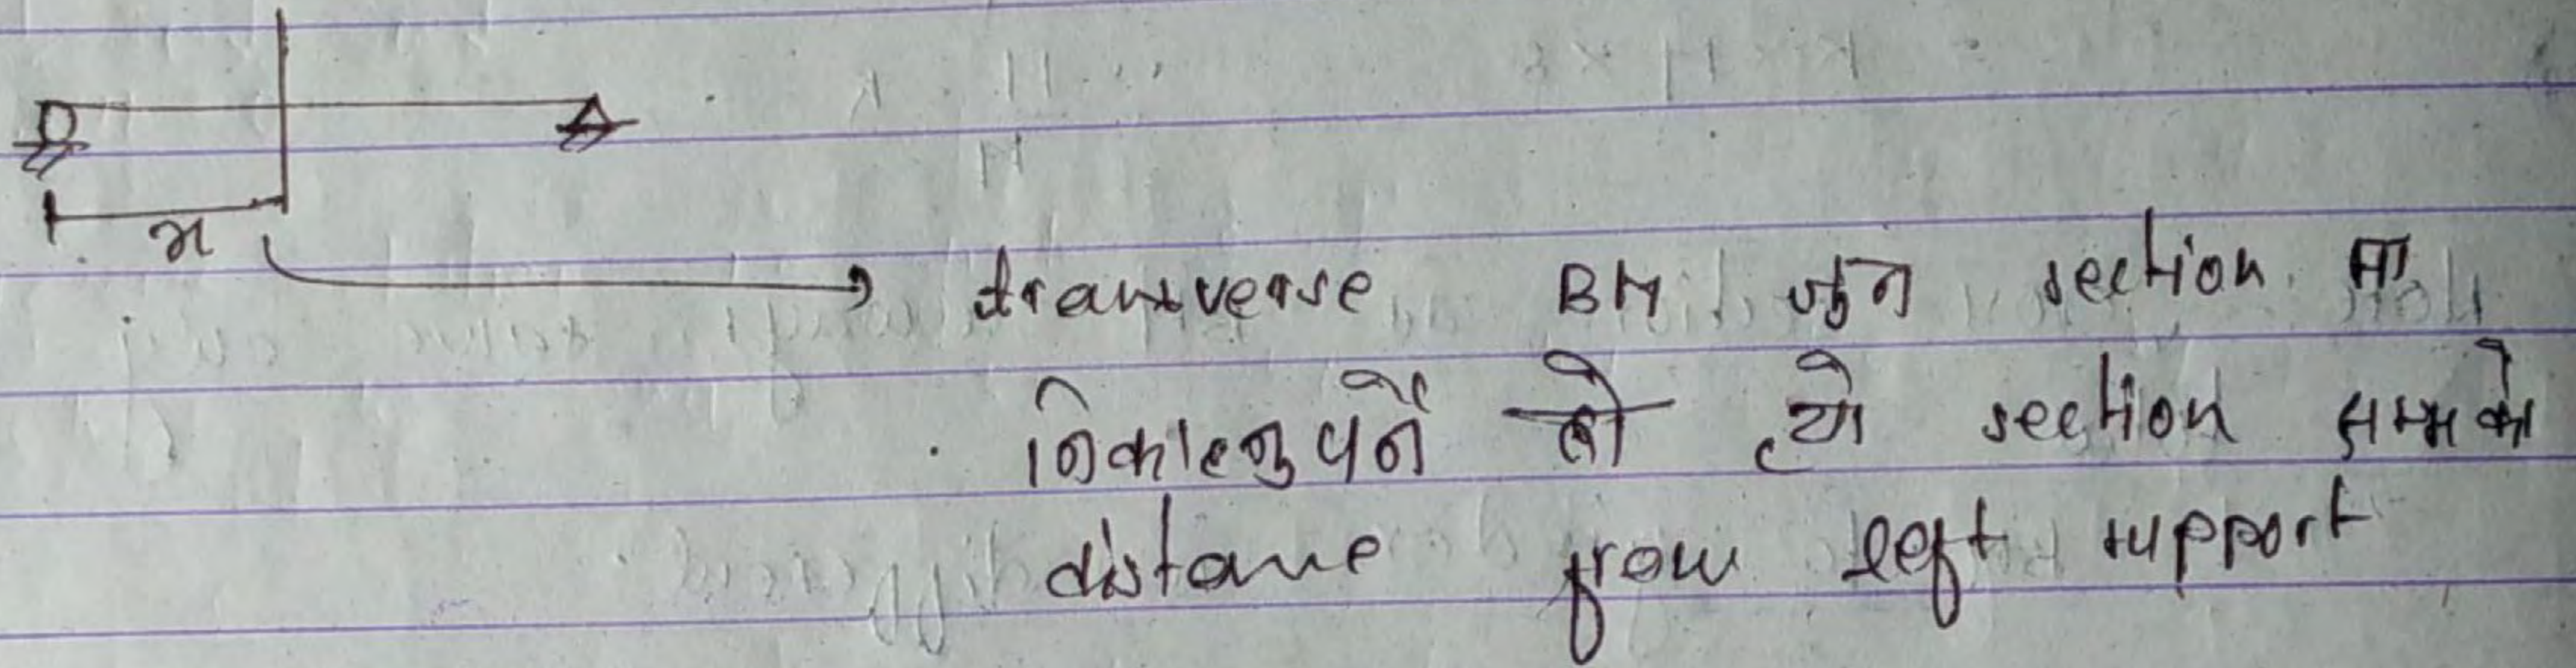 x
transverse BM जुन section मा
निकाल्नु पर्ने हो त्यो section सम्मको
distance from left support